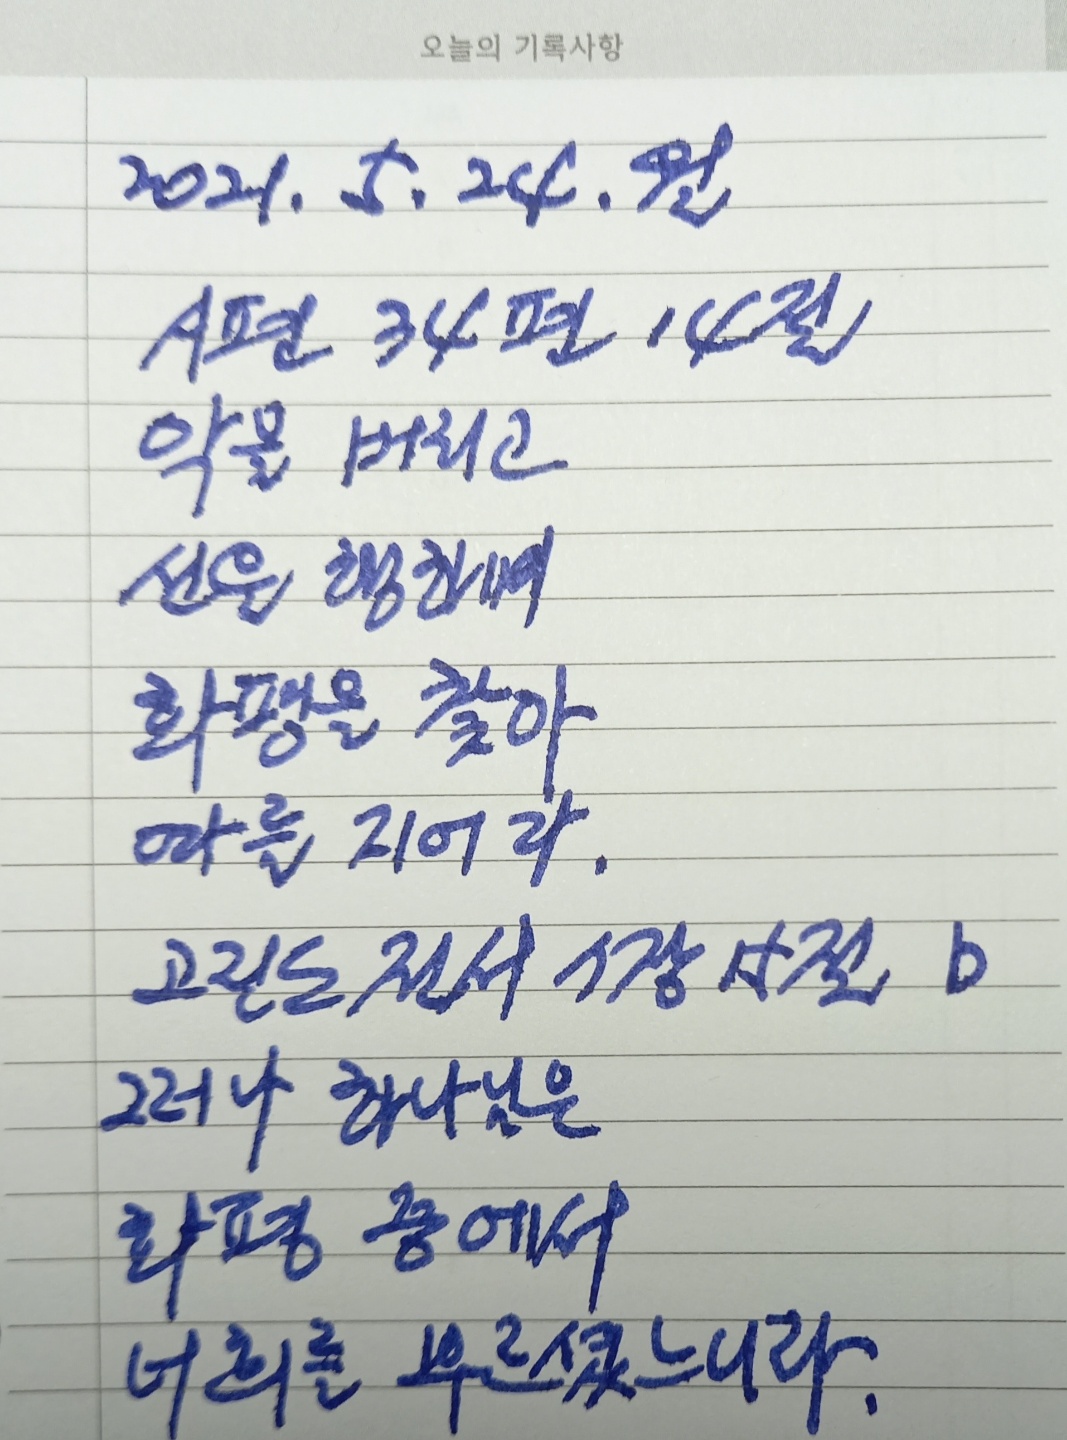 오늘의 기록사항
2021. 5. 24. 월
시편 34편 14절
악을 버리고
선을 행하며
화평을 찾아
따를 지어라.
고린도전서 7장 15절 b
그러나 하나님은
화평 중에서
너희를 부르셨느니라.